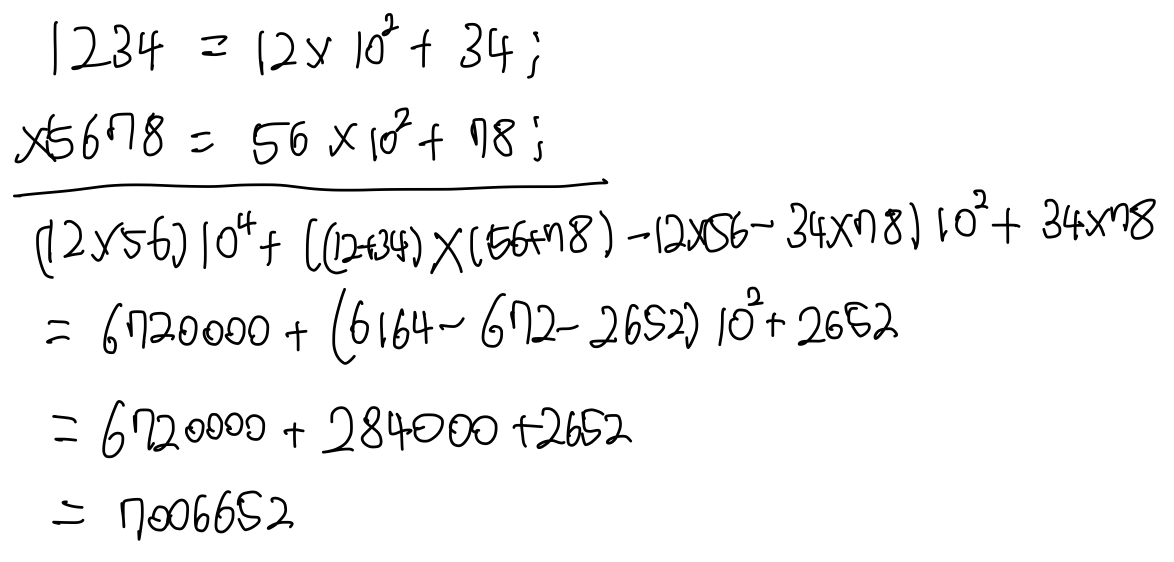 1234 = 12 × 10² + 34;
×5678 = 56 × 10² + 78;
(12×56)10⁴ + ((12+34)×(56+78) - 12×56 - 34×78)10² + 34×78
= 6720000 + (6164 - 672 - 2652)10² + 2652
= 6720000 + 284000 + 2652
= 7006652